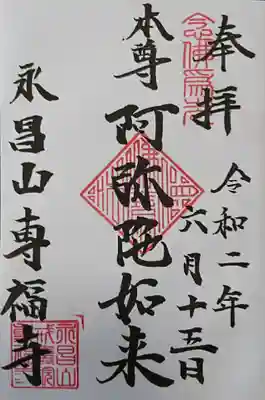 奉拝
令和二年
六月十五日
本尊
阿弥陀如来
永昌山専福寺